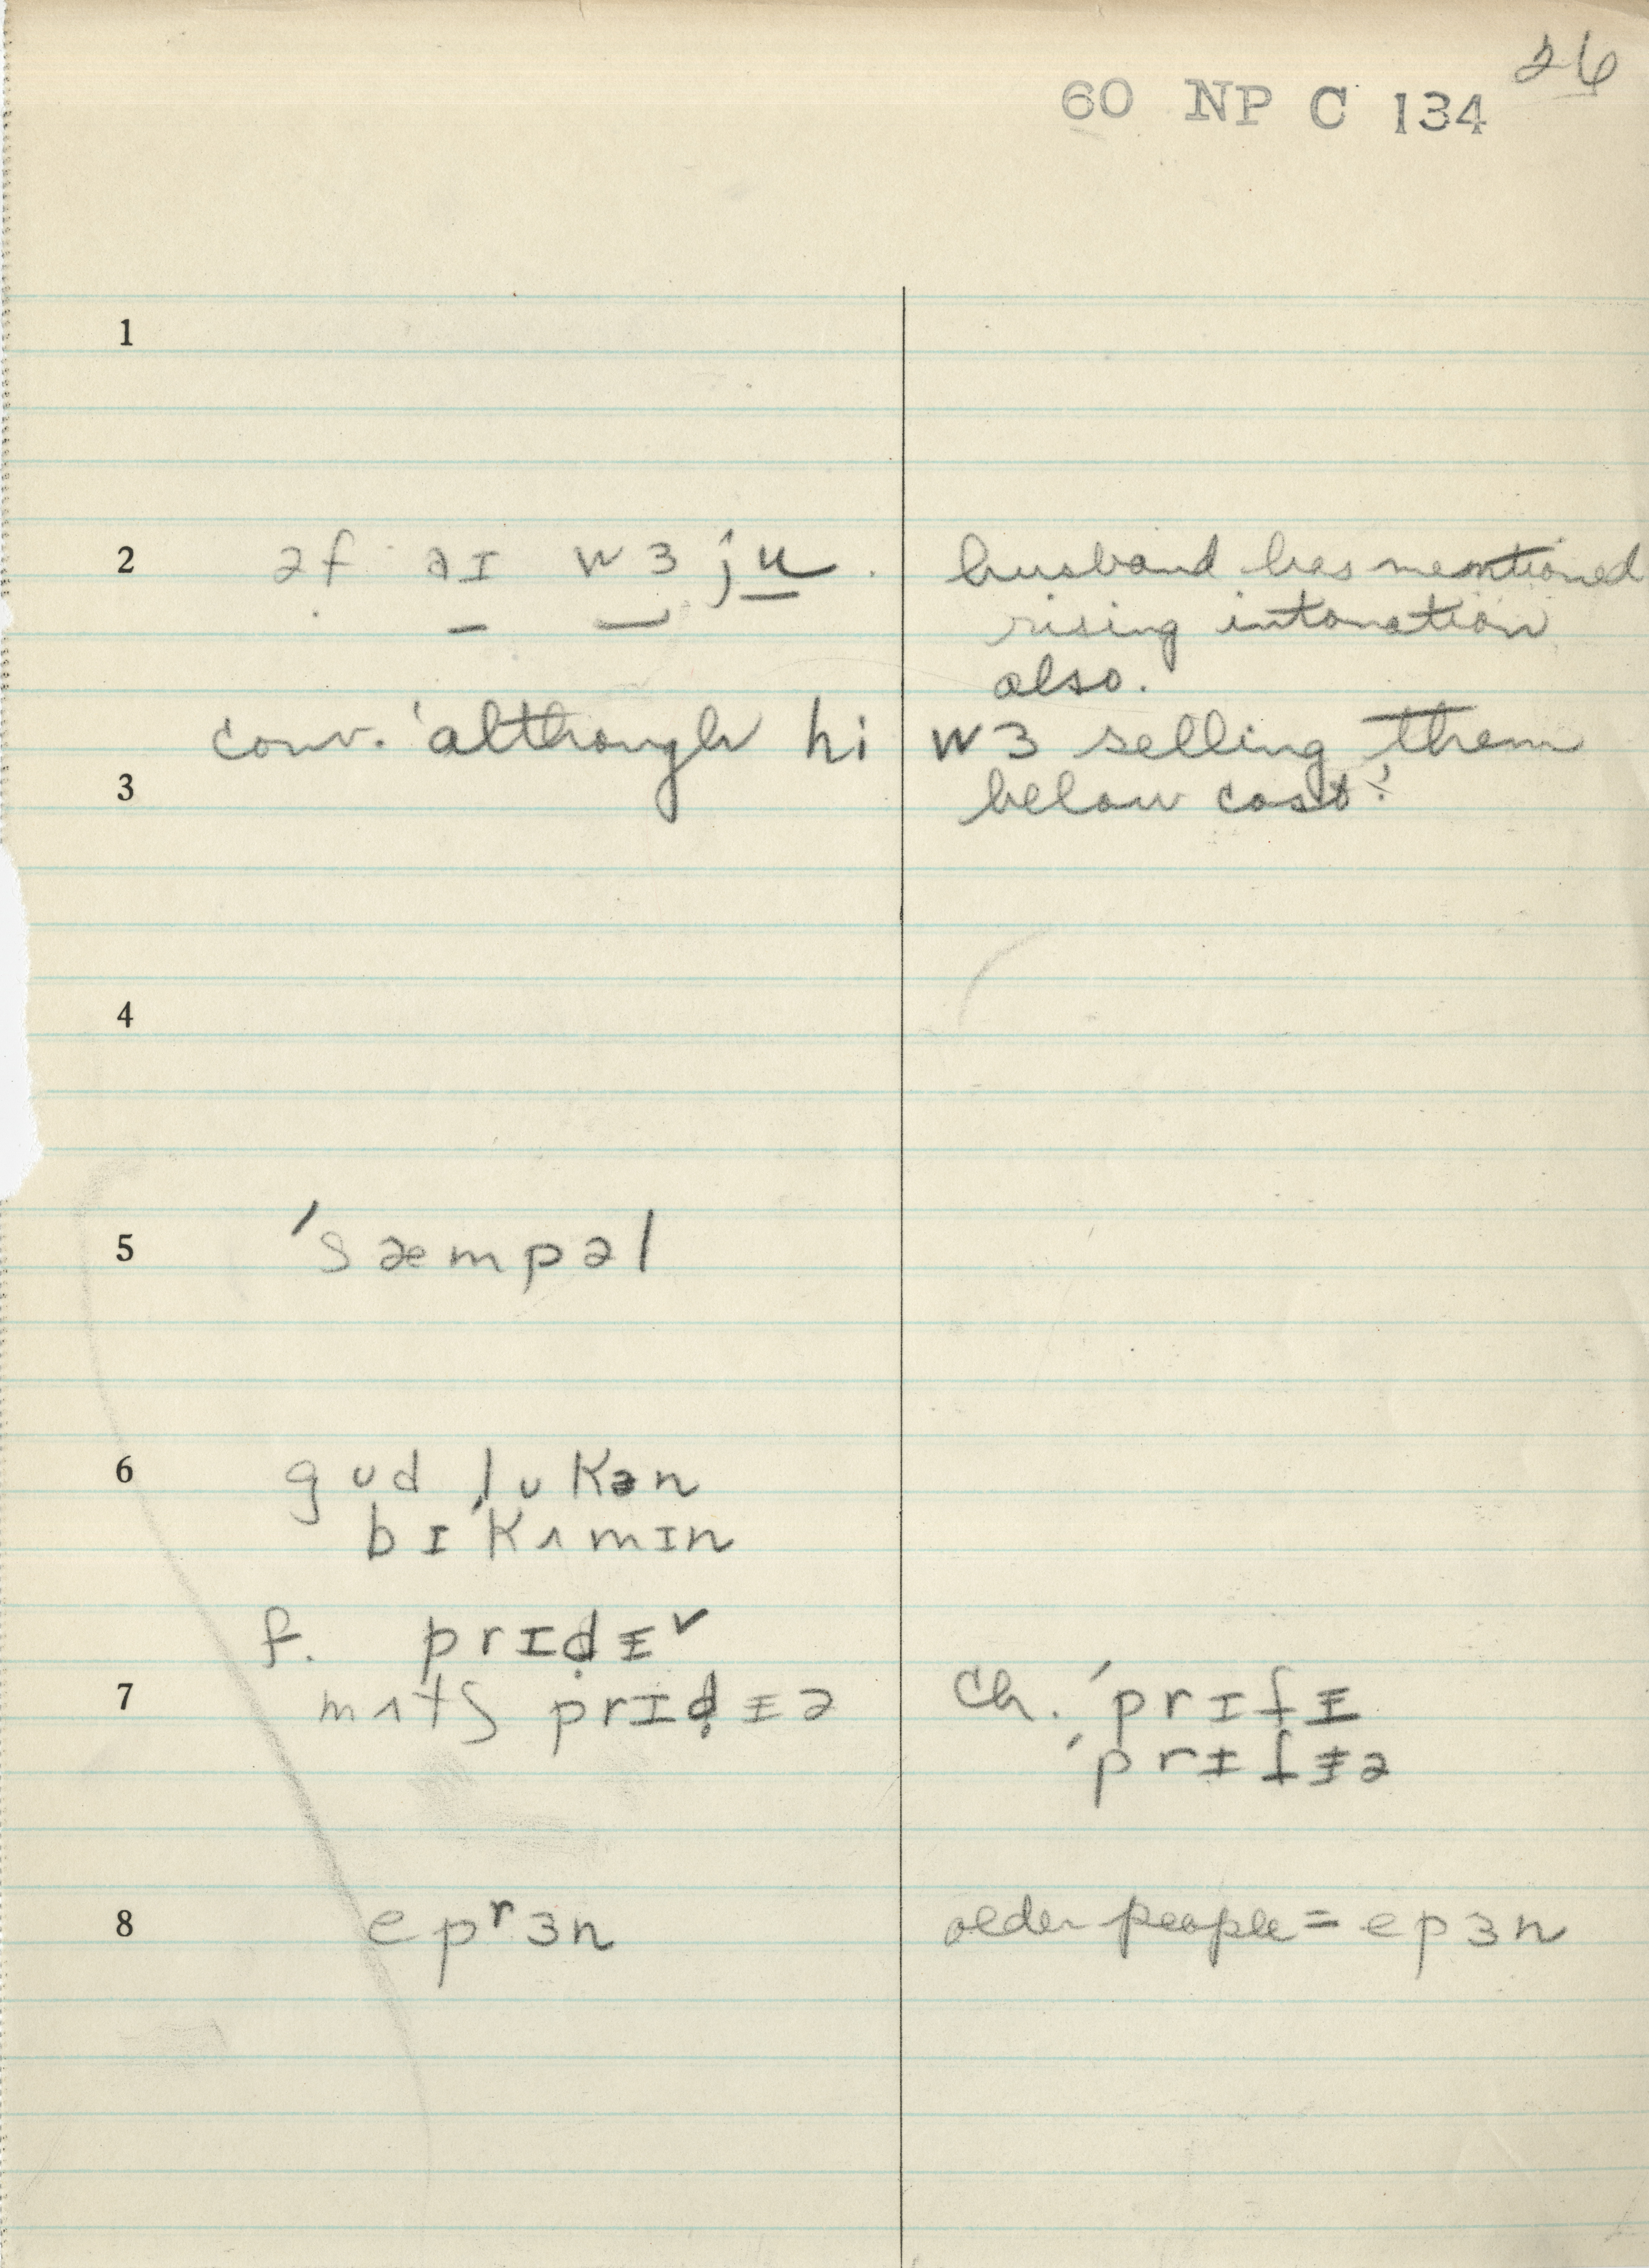 26
60 NP C 134
1
2 əf əɪ wɜ ju. husband has mentioned
rising intonation
also.
conv. 'although hi wɜ selling them
3 below cost'.
4
5 ˈsæmpəl
6 gʊd lʊkən
bɪˈkʌmɪn
f. prɪd̬ɪ˅
7 mʌtʃ prɪd̬ɪə ch. ˈprɪtɪ
ˈprɪtɪə
8 epʳɜn older people = epɜn